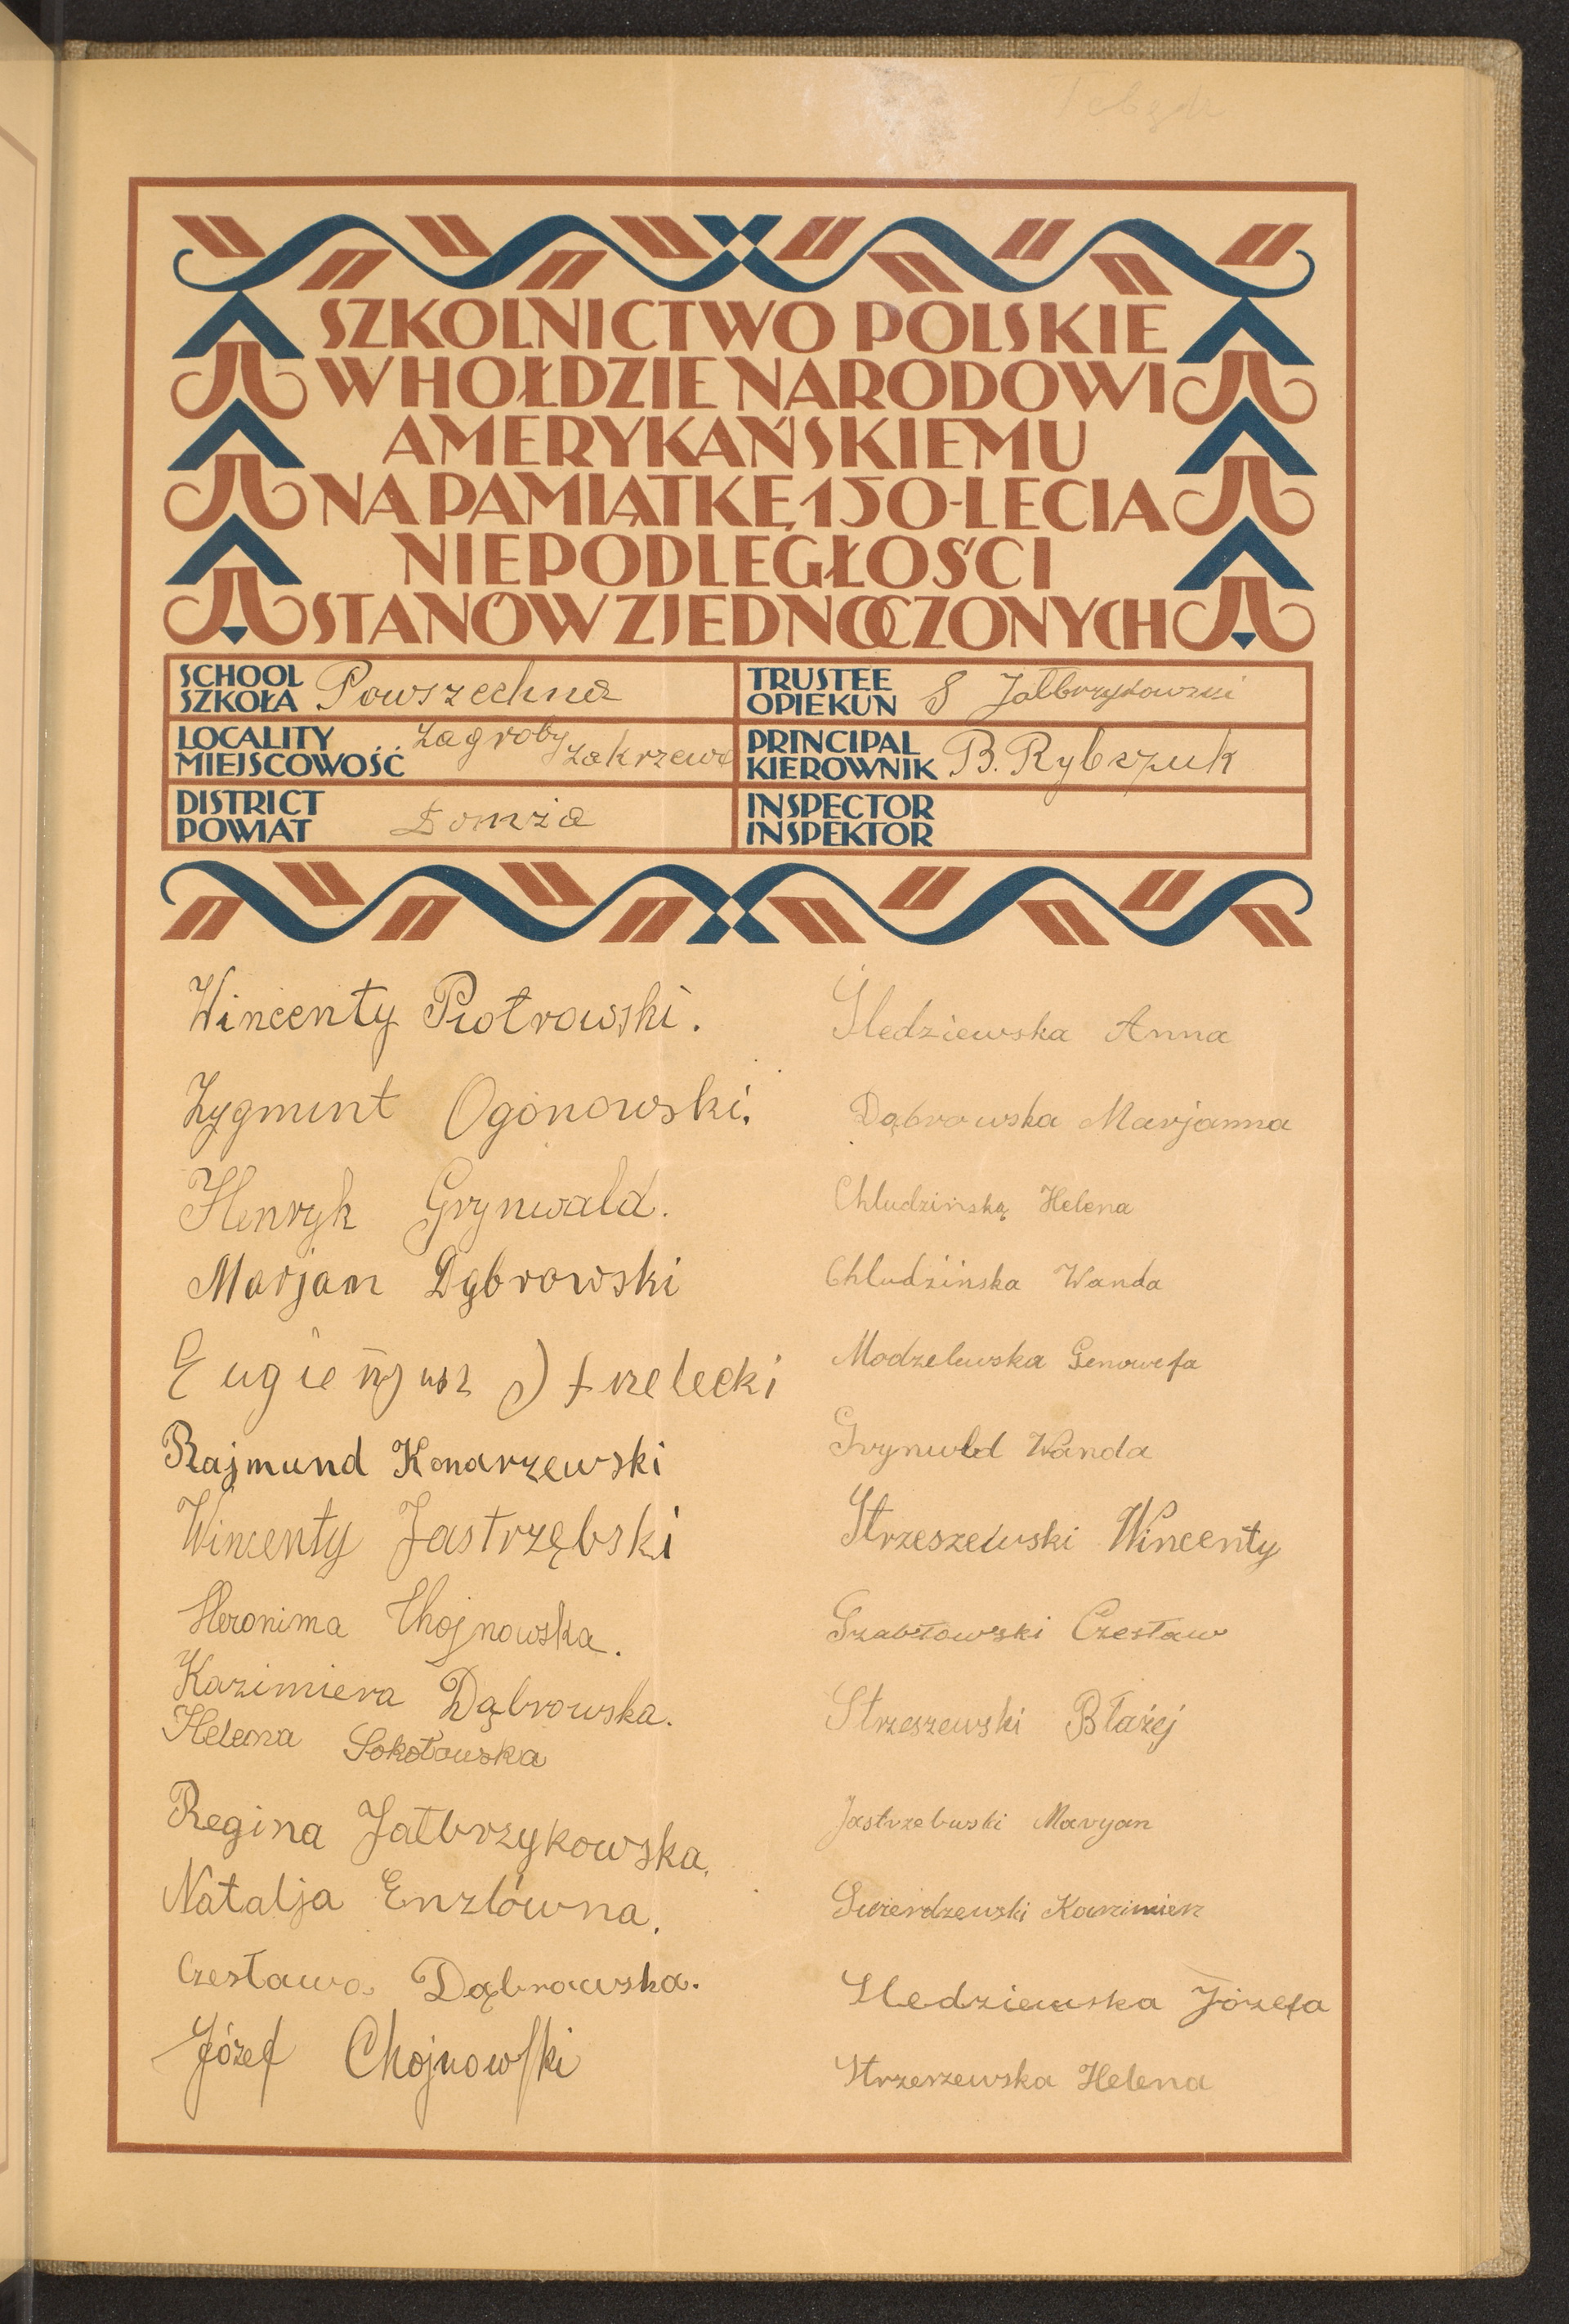 SZKOLNICTWO POLSKIE
W HOŁDZIE NARODOWI
AMERYKAŃSKIEMU
NA PAMIĄTKĘ 150-LECIA
NIEPODLEGŁOŚCI
STANÓW ZJEDNOCZONYCH
SCHOOL
SZKOŁA Powszechna
TRUSTEE
OPIEKUN S Jałbrzykowski
LOCALITY
MIEJSCOWOŚĆ Zagroby Zakrzewo
PRINCIPAL
KIEROWNIK B. Rybszuk
DISTRICT
POWIAT Łomża
INSPECTOR
INSPEKTOR
Wincenty Piotrowski.
Zygmunt Ogonowski.
Henryk Grynwald.
Marjan Dąbrowski
Eugieńjusz Strzelecki
Rajmund Konarzewski
Wincenty Jastrzębski
Heronima Chojnowska.
Kazimiera Dąbrowska.
Helena Sokołowska
Regina Jałbrzykowska.
Natalja Enzlówna.
Czesława Dąbrowska.
Józef Chojnowski
Śledziewska Anna
Dąbrowska Marjanna
Chludzińską Helena
Chludzińska Wanda
Modzelewska Genowefa
Grynwld Wanda
Strzeszewski Wincenty
Czesław
Strzeszewski Błażej
Jastrzebwski Maryan
Kazimierz
Sledziewska Józefa
Strzerzewska Helena